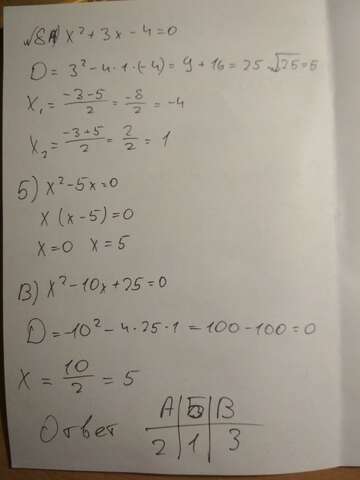 №8 А) x² + 3x - 4 = 0
D = 3² - 4 · 1 · (-4) = 9 + 16 = 25 √25 = 5
x₁ = (-3-5)/2 = -8/2 = -4
x₂ = (-3+5)/2 = 2/2 = 1
Б) x² - 5x = 0
x (x - 5) = 0
x = 0 x = 5
В) x² - 10x + 25 = 0
D = -10² - 4 · 25 · 1 = 100 - 100 = 0
x = 10/2 = 5
А | Б | В
Ответ 2 | 1 | 3